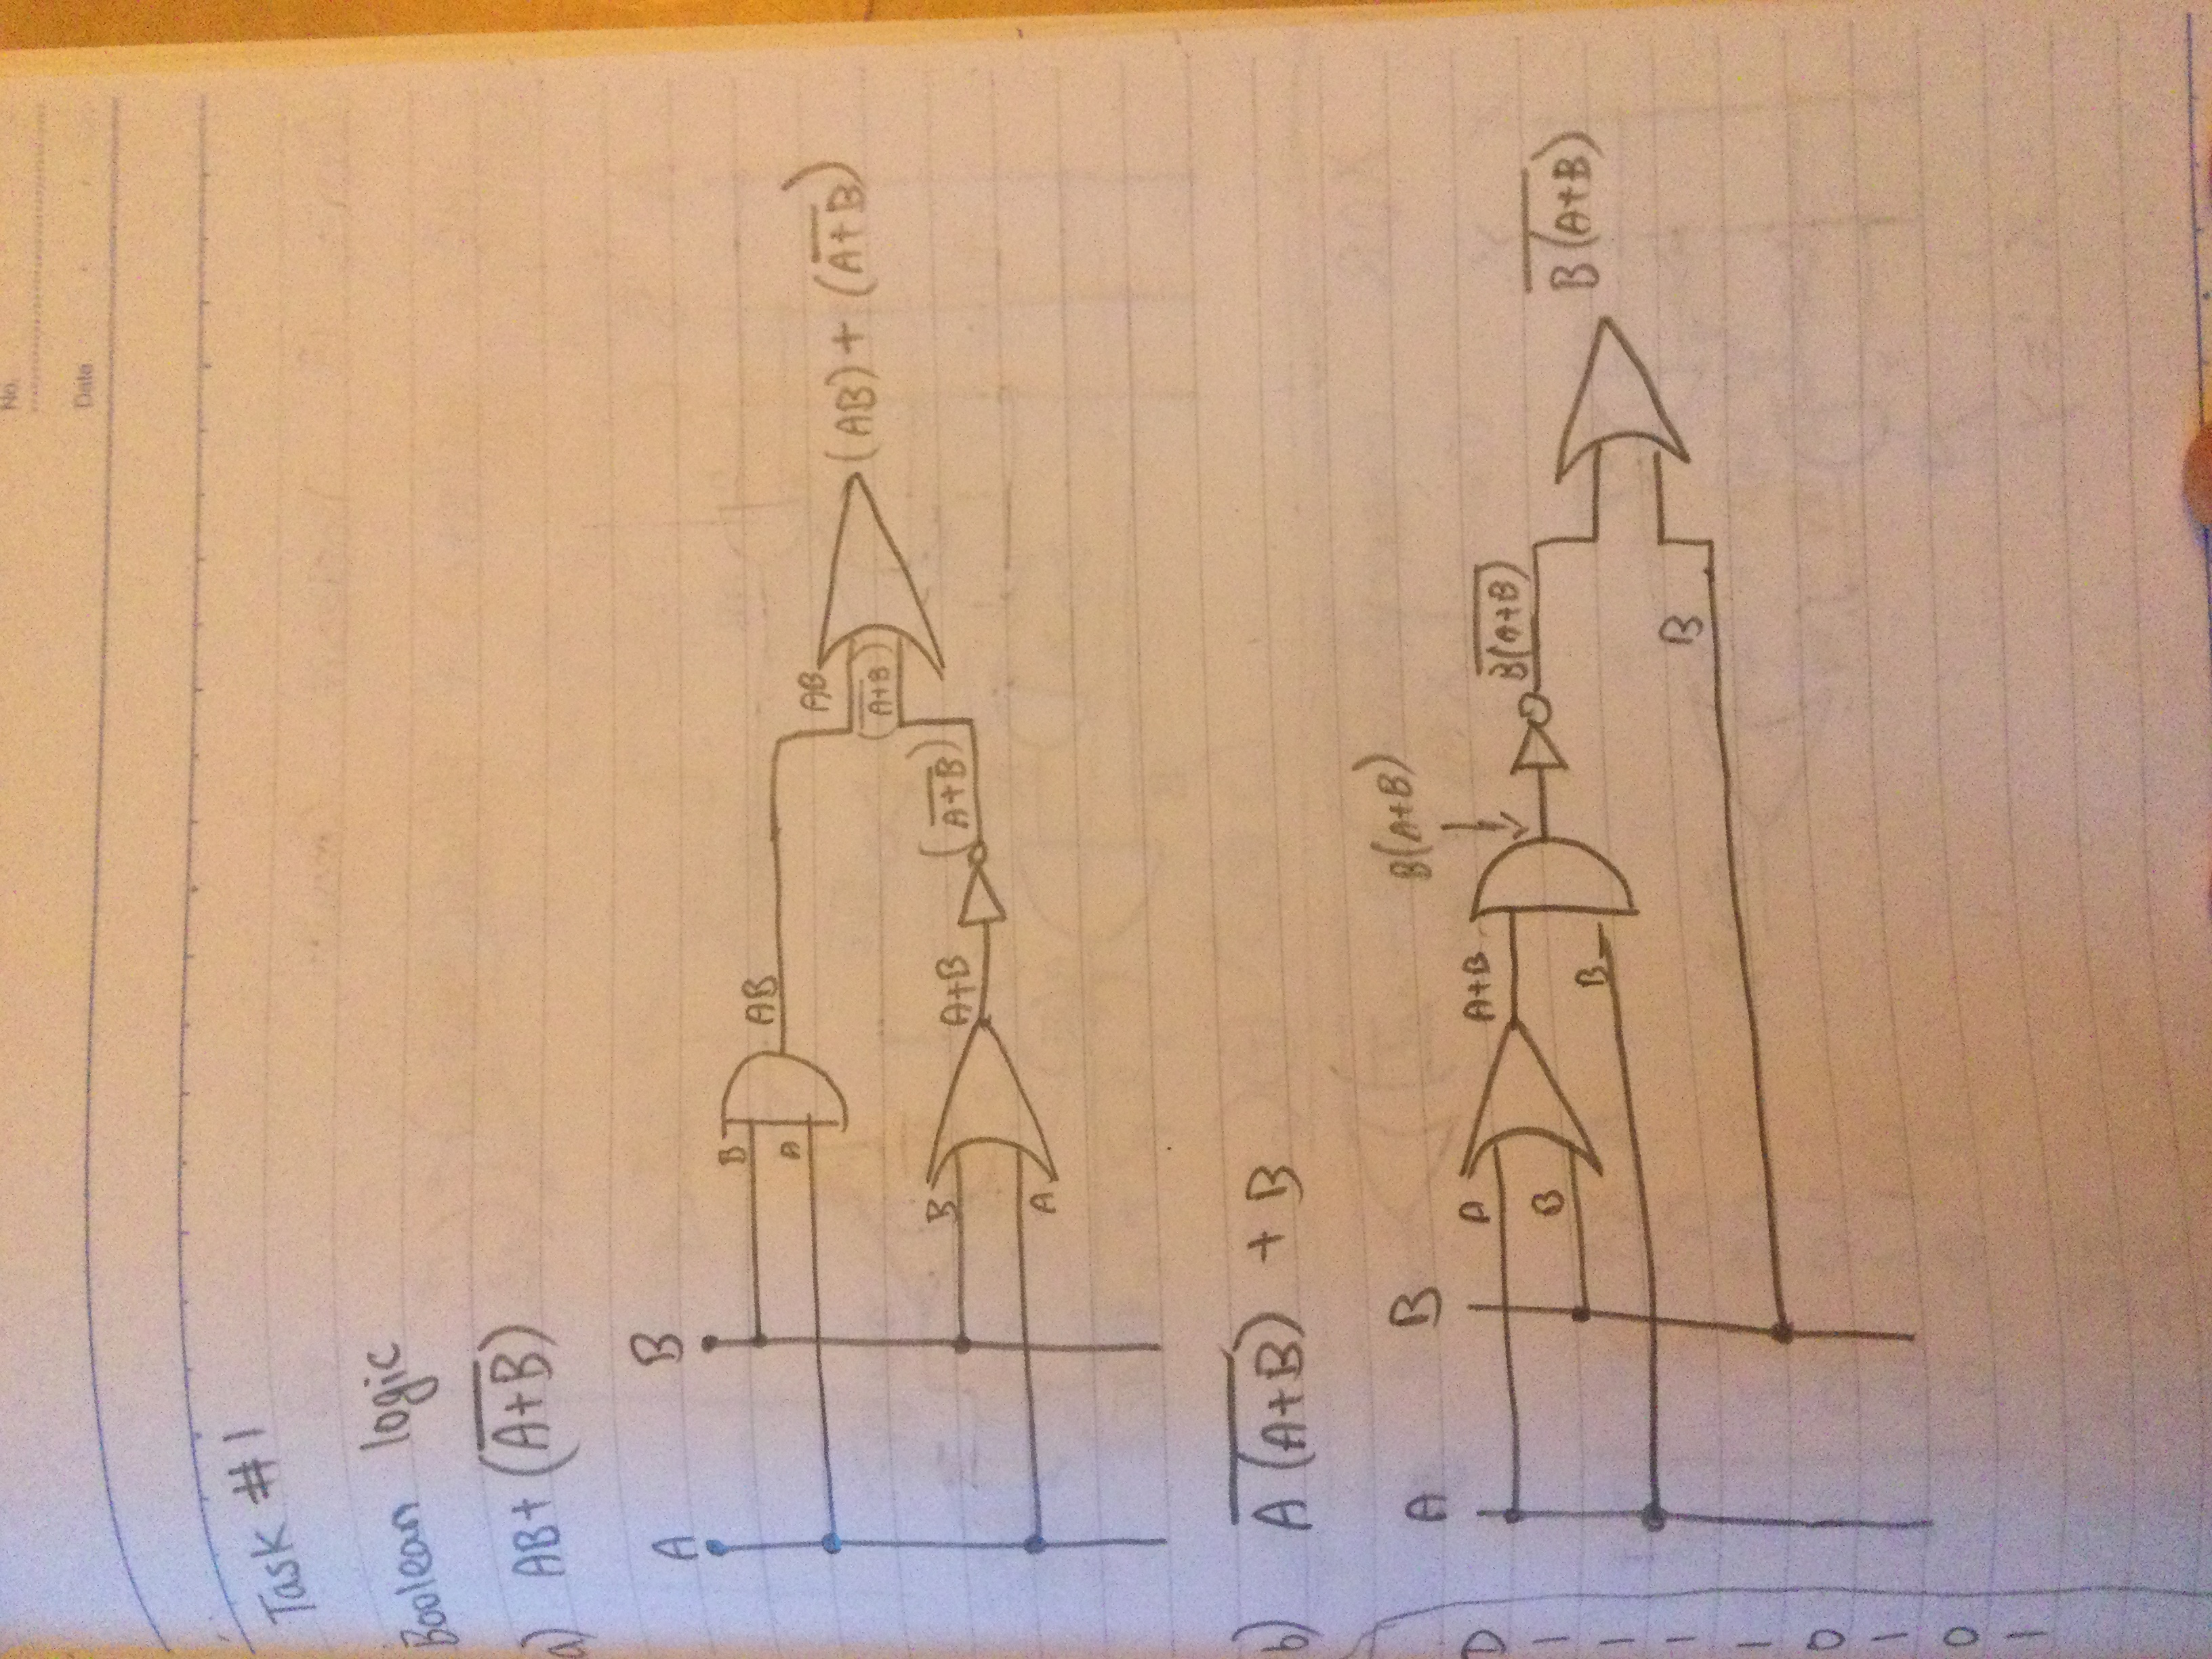 No.
Date
Task #1
Boolean logic
a) AB+(A̅+̅B̅)
A B
B
A
AB
AB
(A̅+̅B̅)
(AB) + (A̅+̅B̅)
B
A
A+B
(A̅+̅B̅)
b) A̅ ̅(̅A̅+̅B̅)̅ + B
A B
A
B
A+B
B
B(A+B)
B̅(̅A̅+̅B̅)̅
B
B̅(̅A̅+̅B̅)̅
D
1
1
1
1
0
1
0
1